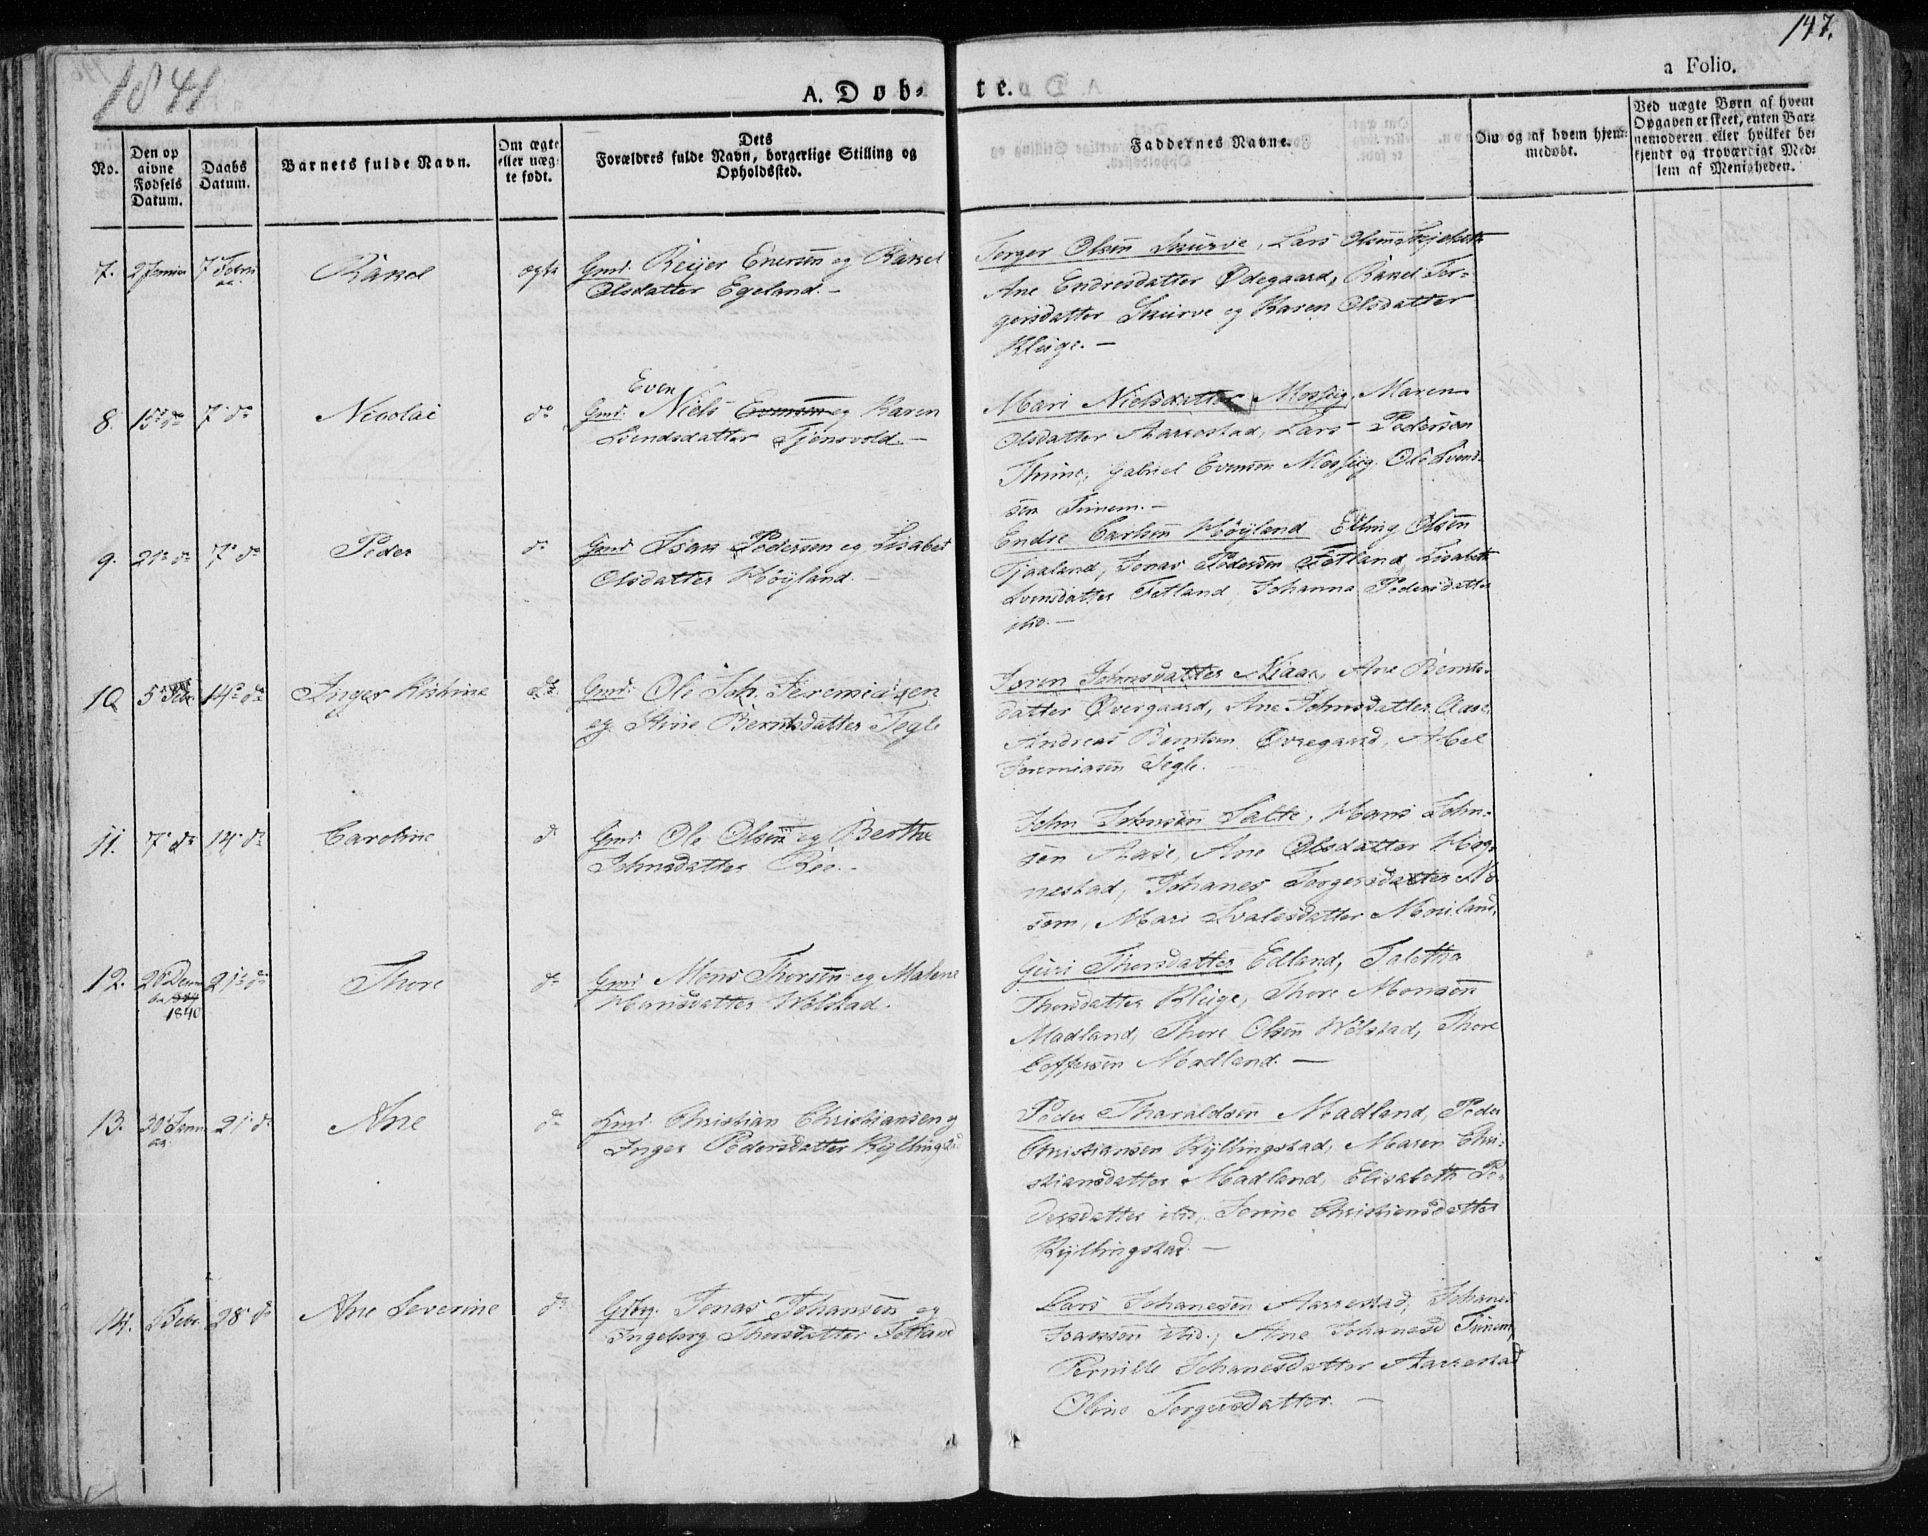 1841
147.
A. Døb-
te.
a Folio.
No.
Den op
givne
Fødsels
Datum.
Daabs
Datum.
Barnets fulde Navn.
Om ægte
eller uæg-
te født.
Dets
Forældres fulde Navn, borgerlige Stilling og
Opholdssted.
Faddernes Navne.
Om og af hvem hjem-
medøbt.
Ved uægte Børn af hvem
Opgaven er skeet, enten Bar-
nemoderen eller hvilket be-
kjendt og troværdigt Med-
lem af Menigheden.
7.
7 Febru
ar.
Rakel
ægte
Gmd. Reijer Enersen og Rakel
Olsdatter Egeland.-
Torger Olsen Skurve, Lars Olsen
Ane Endresdatter Ødegaard, Rakel Tor-
gersdatter Skurve og Karen Olsdatter
Kluge.-
8.
15de do
7. do
Nicolai
do
Even
Gmd. Niels Evensen og Karen
Svendsdatter Tjensvold.-
Mari Nielsdatter Mossig, Maren
Olsdatter Aarrestad, Lars Pedersen
Thime, Gabriel Evensen Mossig, Ole Svend-
sen Tunem.-
9.
21de do
7. do
Peder
do
Gmd. Isak Pedersen og Lisabet
Olsdatter Höyland.-
Endre Carlsen Höyland Elling Olsen
Tjaaland, Jonas Pedersen Fotland, Lisabeth
Svensdatter Fotland, Johanna Pedersdatter
ibid.-
10.
5 Feb.
14de do
Inger Kistine
do.
Gmd. Ole Joh. Jeremiasen
og Stine Berntsdatter Tegle
Soren Johnsdatter Niaae, Ane Bernts-
datter Øvregaard, Ane Johnsdatter Aase,
Andreas Berntsen Øvregaard, Abel
Jeremiasen Tegle.
11.
7. do
14. do
Caroline
do
Gmd. Ole Olsen og Berthe
Johnsdatter Ree.-
John Johnsen Salte, Hans John-
sen Aase, Ane Olsdatter Hög-
nestad, Johanes Torgersdatter
som, Mari Svalesdatter
12.
26 Decem
ber 1839
1840
21de do
Thore
do
Gmd Mons Thorsen og Malene
Hansdatter Wölstad.
Guri Thorsdatter Edland, Taletha
Thorsdatter Kluge, Thore Monsen
Madland, Thore Olsen Wölstad, Thore
Coffersen Madland.-
13.
30 Janu
ar
21. do
Ane
do
Gmd. Christian Christiansen og
Inger Pedersdatter Kyllingstad
Peder Tharaldsen Madland, Peder
Christiansen Kyllingstad, Maren Chri-
stiansdatter Madland, Elisabeth Pe-
dersdatter ibid, Serine Christiansdatter
Kyllingstad.-
14.
Febr.
28. do
Ane Severine
do
Gdbrg. Jonas Johansen og
Ingeborg Thorsdatter Fotland
Lars Johanesen Aarrestad, Johanes
Isaksen ibid., Ane Johanesd Tunem,
Pernille Johanesdatter Aarrestad
Oline Torgersdatter.-